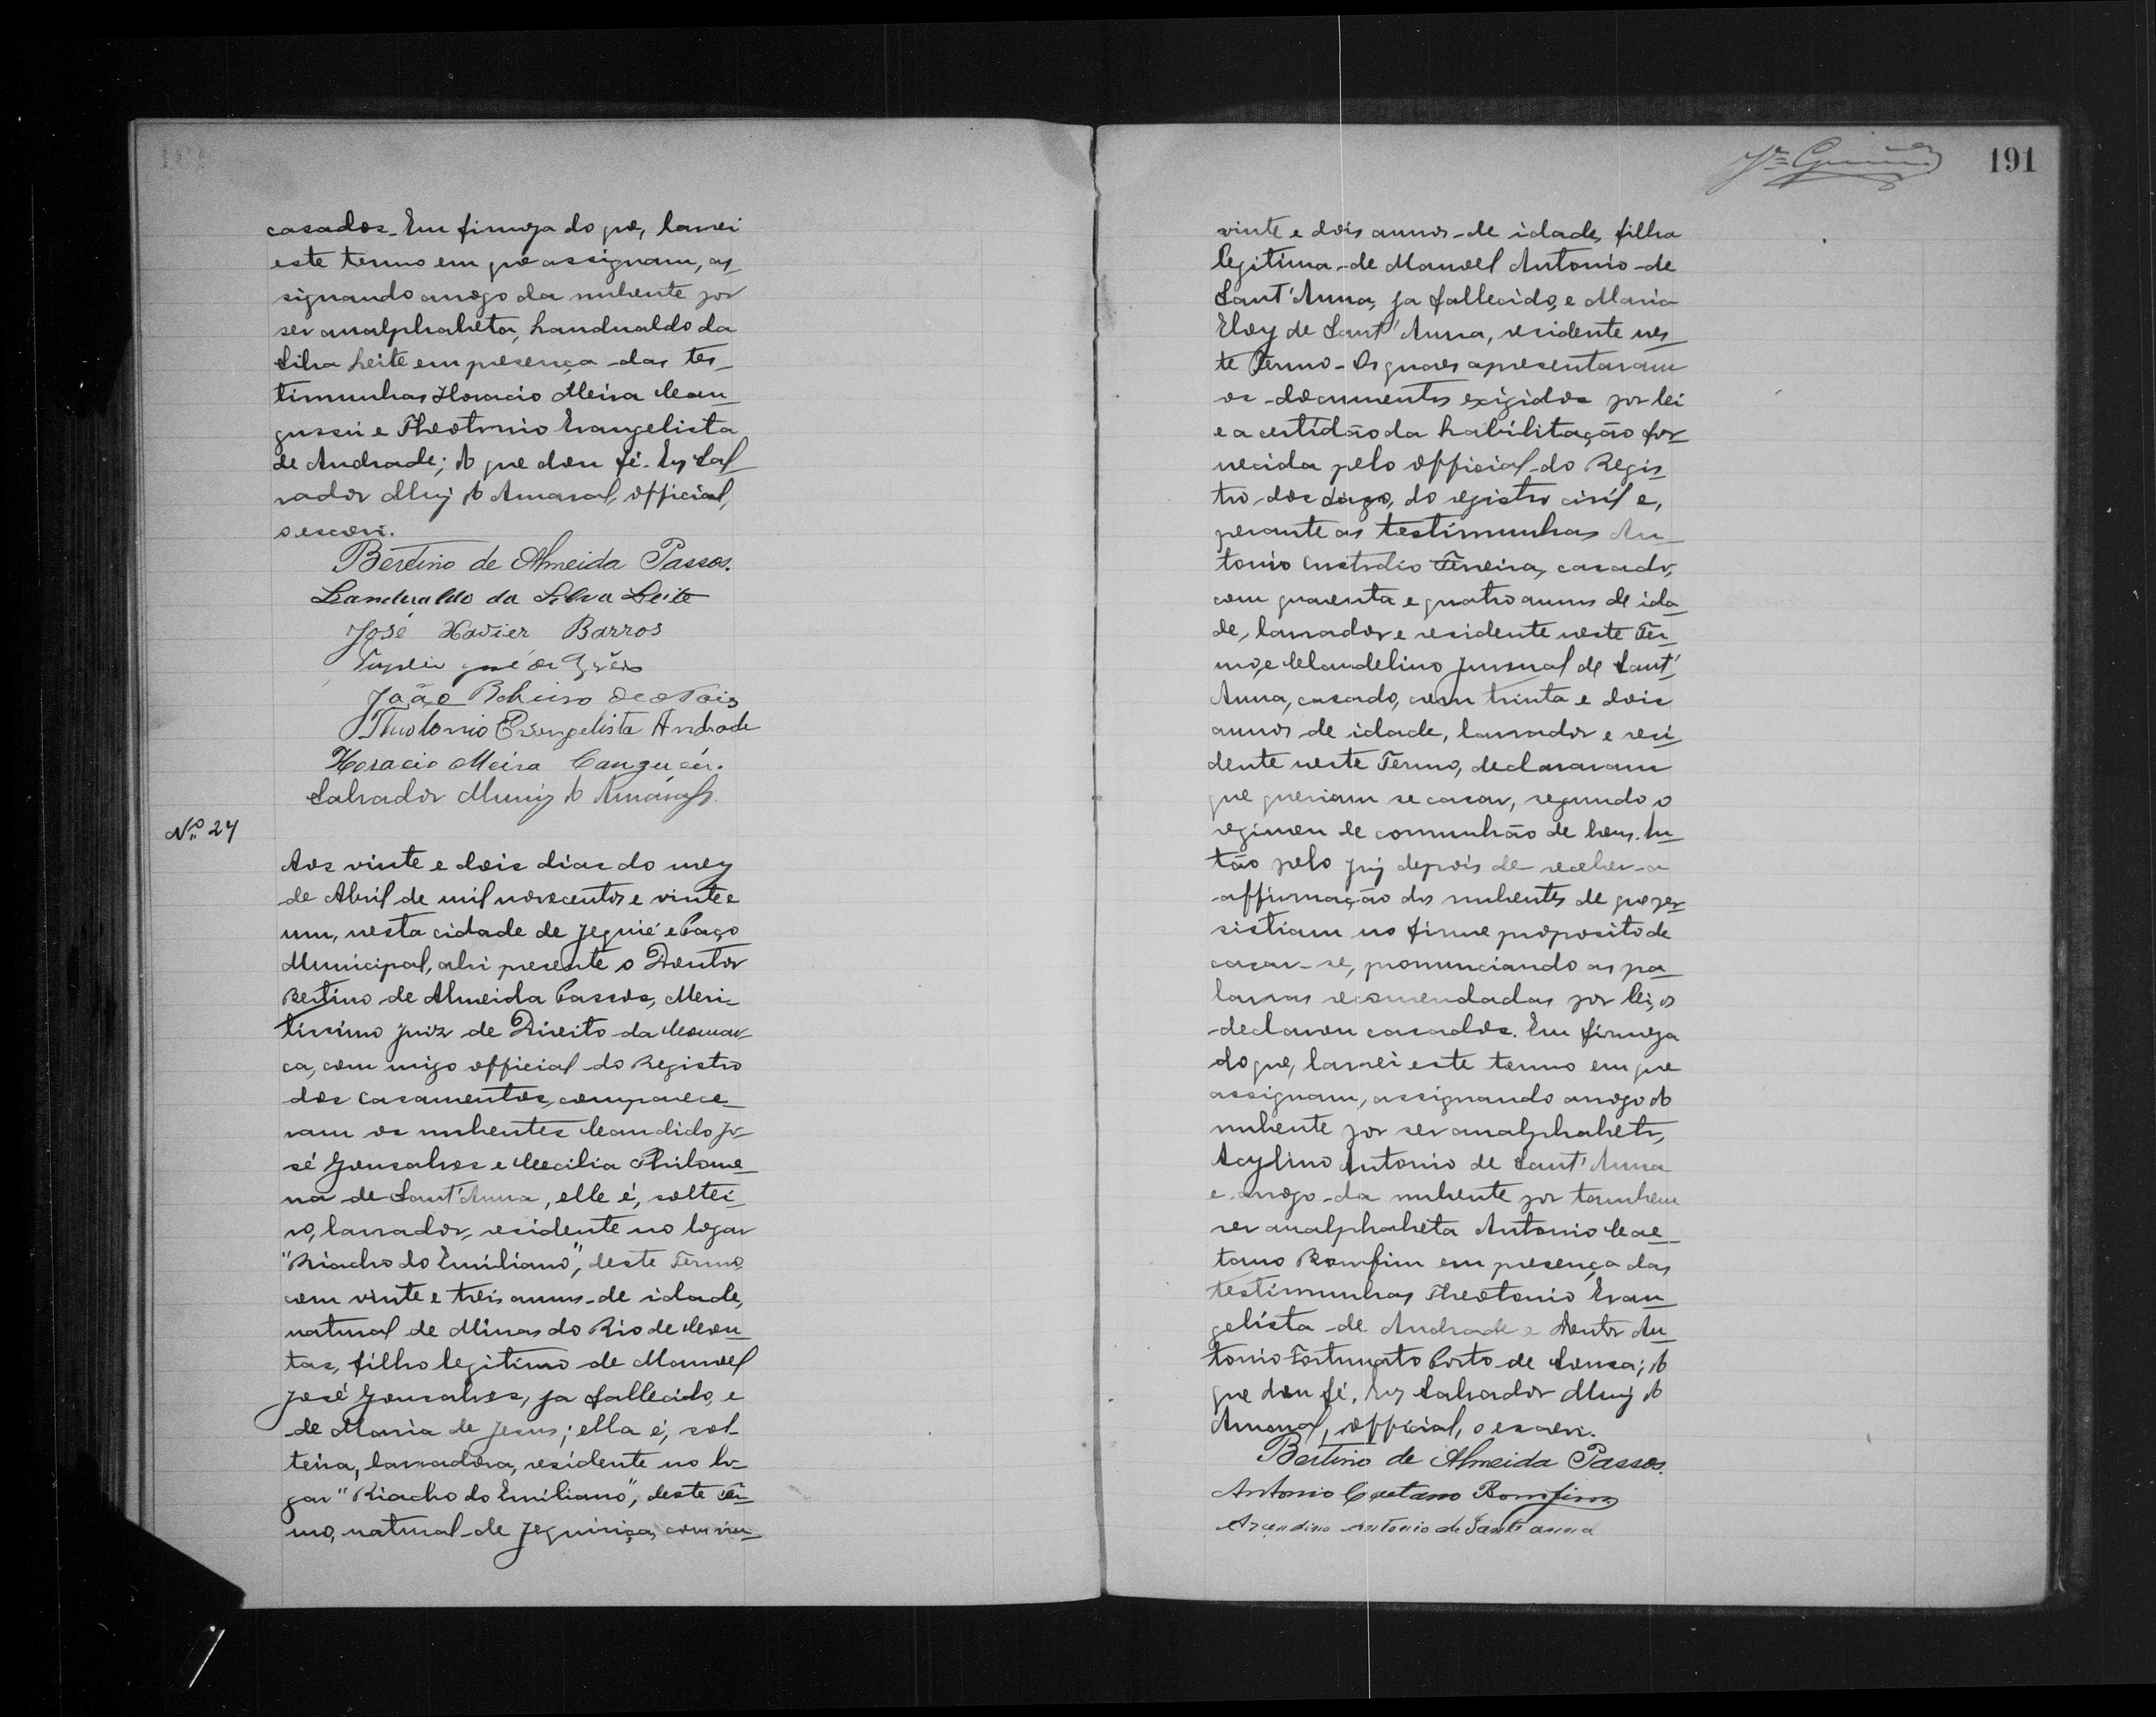 casados. Em firmeza do que, lavrei
este termo em que assignam, as
signando arogo da nubente por
ser analphabeta, Landualdo da
Silva Leite em presença das tes
timunhas Horacio Meira Can
gussú e Theotonio Evangelista
de Andrade; do que dou fé. Eu Sal
vador Muniz do Amaral, official,
o escrevi.
Bertino de Almeida Passos.
Landualdo da Silva Leite
José Xavier Barros
José
João Ribeiro
Theotonio Evangelista Andrade
Horacio Meira Cangucú.
Salvador Muniz do Amaral
Nº 24
Aos vinte e dois dias do mez
de Abril de mil novecentos e vinte e
um, nesta cidade de Jequié e Paço
Municipal, ahi presente o Doutor
Bertino de Almeida Passos, Meri
tissimo Juiz de Direito da Comar
ca, com migo official do Registro
dos casamentos, comparece
ram os nubentes Candido Jo
sé Gonsalves e Cecilia Philome
na de Sant'Anna, elle é, soltei
ro, lavrador, residente no logar
"Riacho do Emiliano", deste Termo
com vinte e treis annos de idade,
natural de Minas do Rio de Con
tas, filho legitimo de Manoel
José Gonsalves, ja fallecido, e
de Maria de Jesus; ella é, sol
teira, lavradora, residente no lo
gar "Riacho do Emiliano", deste Ter
mo, natural de Jequiriça, com vin
191
vinte e dois annos de idade, filha
legitima de Manoel Antonio de
Sant'Anna, ja fallecido, e Maria
Eloy de Sant'Anna, residente nes
te Termo. Os quaes apresentaram
os documentos exigidos por lei
e a certidão da habilitação for
necida pelo official do Regis
tro dos digo, do registro civil e,
perante as testimunhas An
tonio Custodio Ferreira, casado,
com quarenta e quatro annos de ida
de, lavrador e residente neste Ter
mo, e Claudelino Juvenal de Sant'
Anna, casado, com trinta e dois
annos de idade, lavrador e resi
dente neste Termo, declararam
que queriam se casar, segundo o
regimen de comunhão de bens. En
tão pelo Juiz depois de receber a
affirmação dos nubentes de que per
sistiam no firme proposito de
casar-se, pronunciando as pa
lavras recomendadas por lei, os
declarou casados. Em firmeza
do que, lavrei este termo em que
assignam, assignando arogo do
nubente por ser analphabeto,
Acylino Antonio de Sant'Anna
e arogo da nubente por tambem
ser analphabeta Antonio Cae
tano Bomfim em presença das
testimunhas Theotonio Evan
gelista de Andrade e Doutor An
tonio Fortunato Porto de Sousa; do
que dou fé. Eu Salvador Muniz do
Amaral, official, o escrevi.
Bertino de Almeida Passos.
Antonio Caetano Bomfim
Antonio de Sant anna